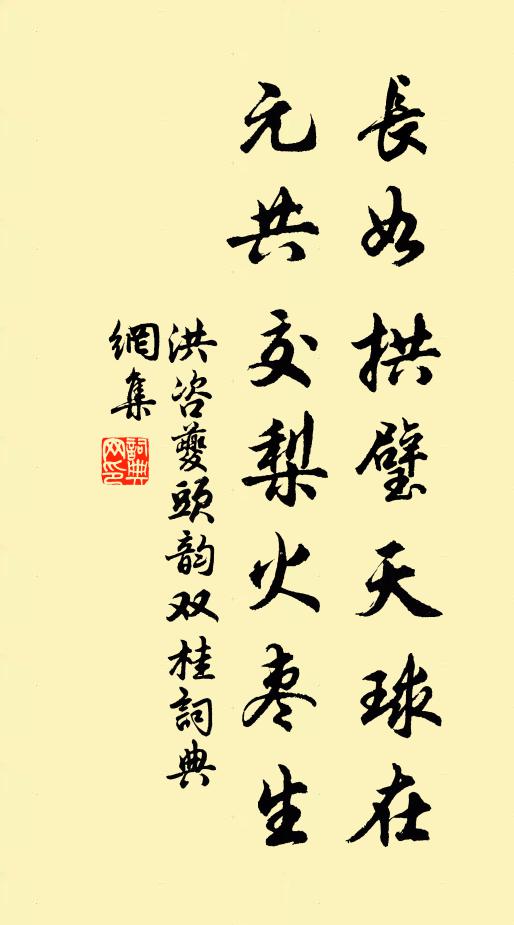 長如拱璧天球在
元共交梨火枣生
洪咨夔頭韵双桂詞典
網集
詞典網印